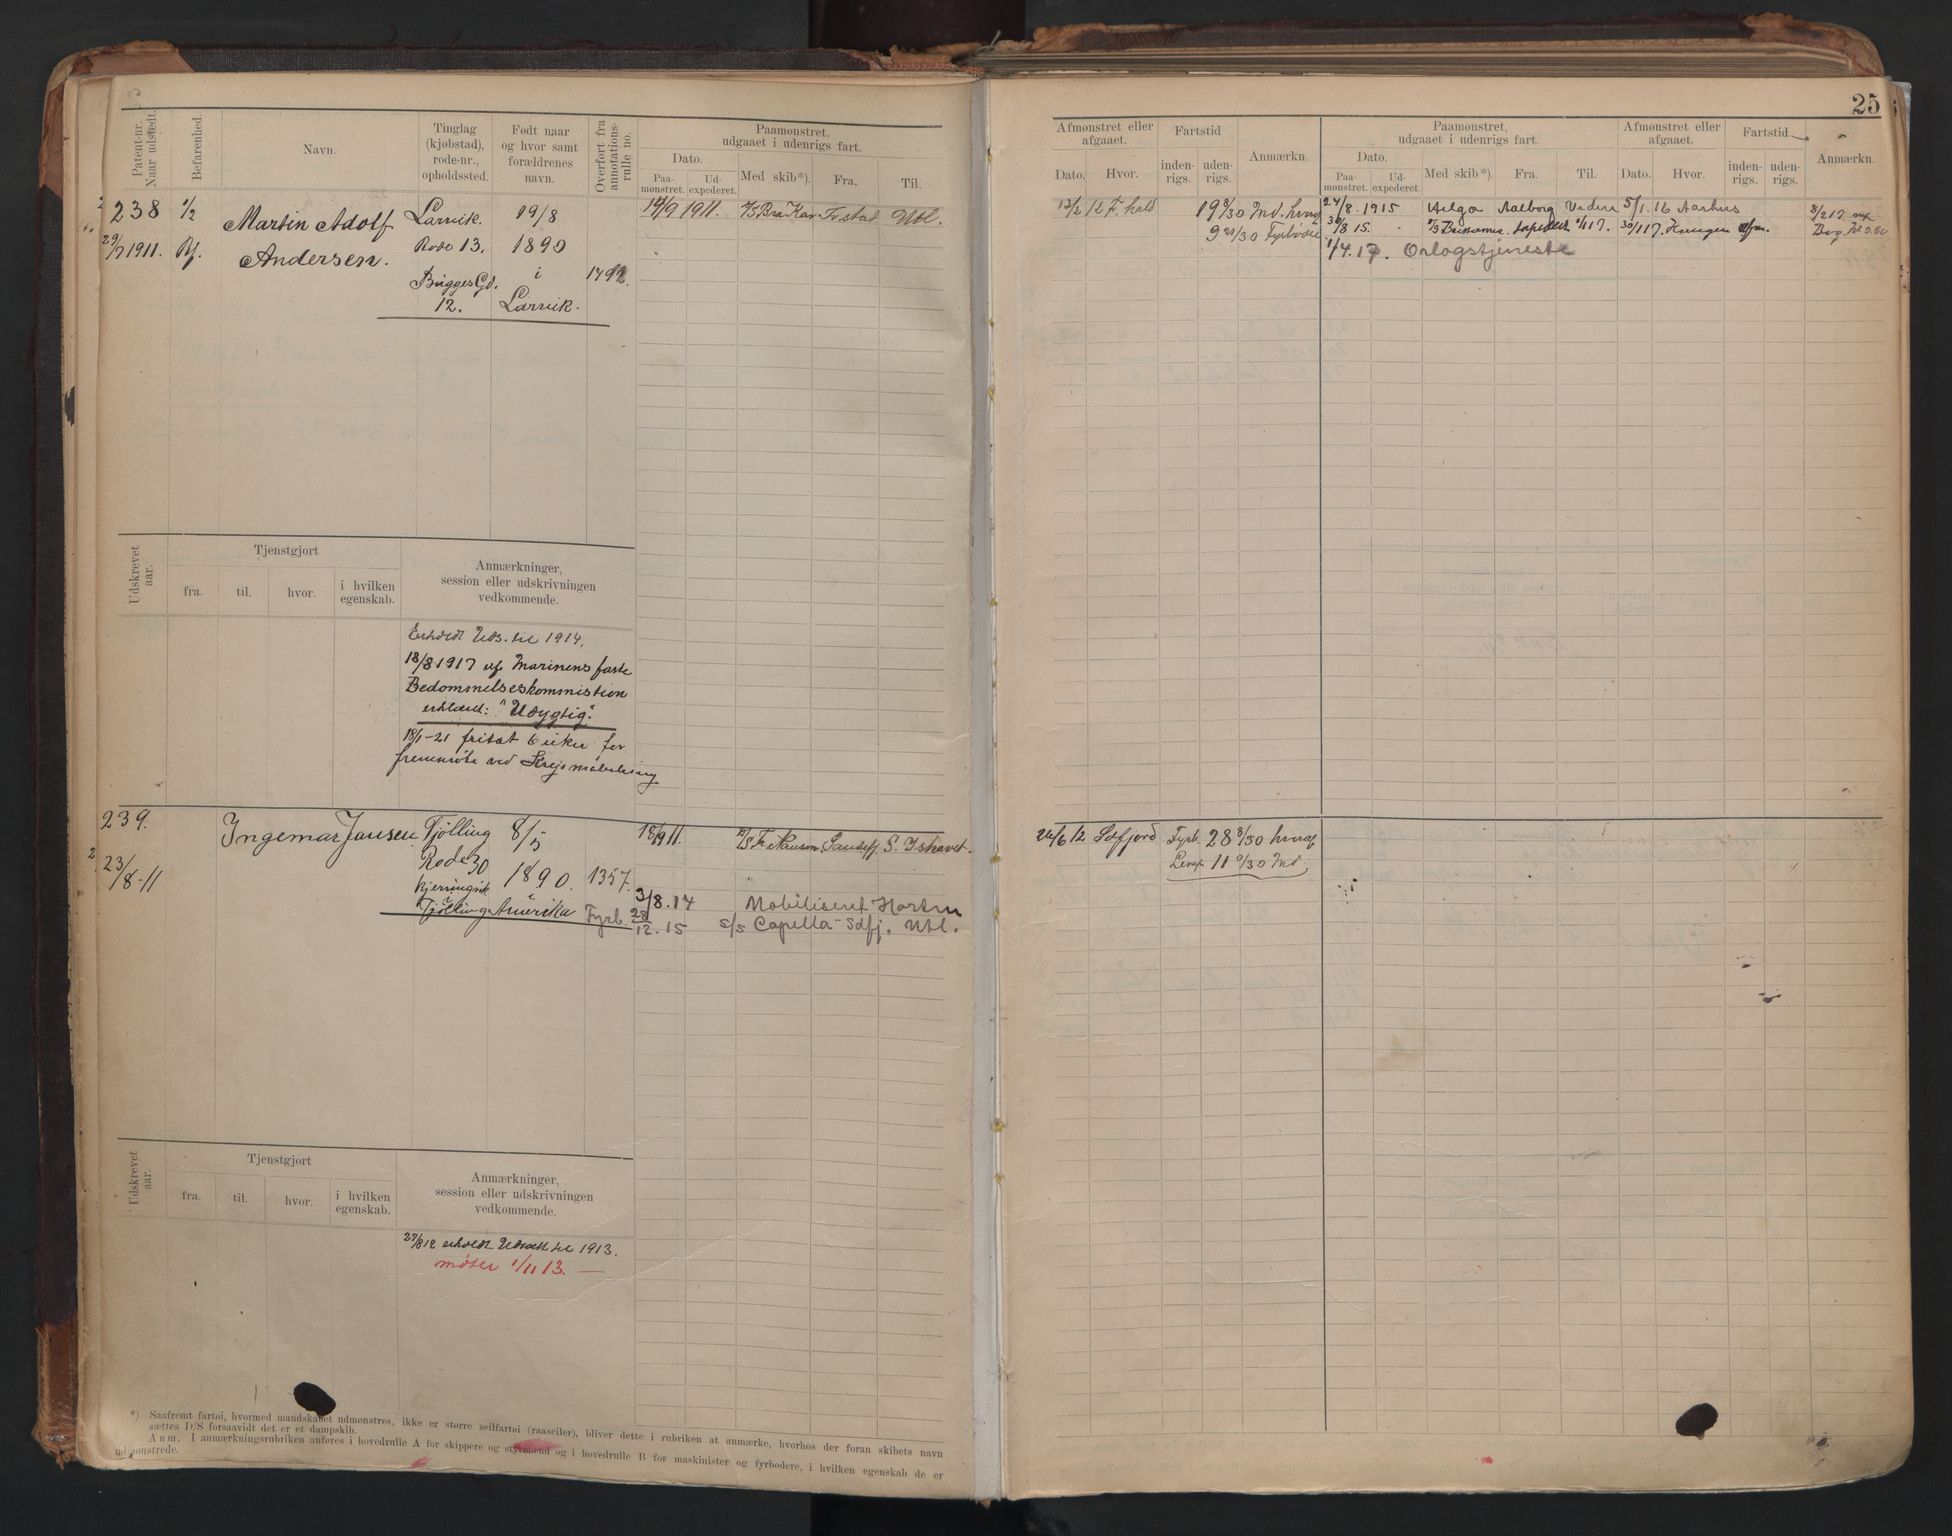 25
Patent-nr. Naar udstedt.
Befarenhed.
Navn.
Tinglag (kjøbstad), rode-nr., opholdssted.
Født naar og hvor samt forældrenes navn.
Overført fra annotations-rulle no.
Paamønstret, udgaaet i udenrigs fart.
Dato.
Paa-mønstret.
Ud-expederet.
Med skib*).
Fra.
Til.
238
1/2
Martin Adolf
Larvik.
19/8
14/9 1911.
Fr.stad
Utl.
29/7 1911.
Andersen.
Rode 13.
1890
Bugges Gd.
i
1792.
12.
Larvik.
Udskrevet aar.
Tjenstgjort
fra.
til.
hvor.
i hvilken egenskab.
Anmærkninger,
session eller udskrivningen
vedkommende.
Erholdt Uds. til 1914.
18/8 1917 af Marinens faste
Bedømmelseskommission
erklæret: "Udygtig".
18/1-21 fritat 6 uker for
fremmøte ved Krigsmobilisering
239.
Ingemar Jansen
Tjølling
8/5
18/9 11.
Sandefj. S. Ishavet.
23/8-11
Rode 30
1890.
1357.
Kjerringvik
3/8. 14
Mobiliseret Horten
Tjølling
Amerika
Fyrb.
28/12. 15
S/S Capella Sdfj. Utl.
Udskrevet aar.
Tjenstgjort
fra.
til.
hvor.
i hvilken egenskab.
Anmærkninger,
session eller udskrivningen
vedkommende.
27/8 12 erholdt Udsætt til 1913.
møter 1/11 13. —
*) Saafremt fartøi, hvormed mandskabet udmønstres, ikke er større seilfartøi (raaseiler), bliver dette i rubriken at anmærke, hvorhos der foran skibets navn
sættes D/S forsaavidt det er et dampskib.
Anm. I anmærkningsrubriken anføres i hovedrulle A for skippere og styrmænd og i hovedrulle B for maskinister og fyrbødere, i hvilken egenskab de er
udmønstrede.
Afmønstret eller afgaaet.
Dato.
Hvor.
Fartstid
inden-rigs.
uden-rigs.
Anmærkn.
Paamønstret, udgaaet i udenrigs fart.
Dato.
Paa-mønstret.
Ud-expederet.
Med skib*).
Fra.
Til.
Afmønstret eller afgaaet.
Dato.
Hvor.
Fartstid
inden-rigs.
uden-rigs.
Anmærkn.
13/2 12 F.hald
19 8/30 Md. hvoraf
24/8. 1915
Helga
Aalborg
5/1. 16 Aarhus
Fyrbøder
30/8 15.
30/1 17.
1/4. 17. Orlogstjeneste
24/6 12 Sdfjord
Fyrb. 28 8/30 hvoraf
Lemp. 11 0/30 Md.